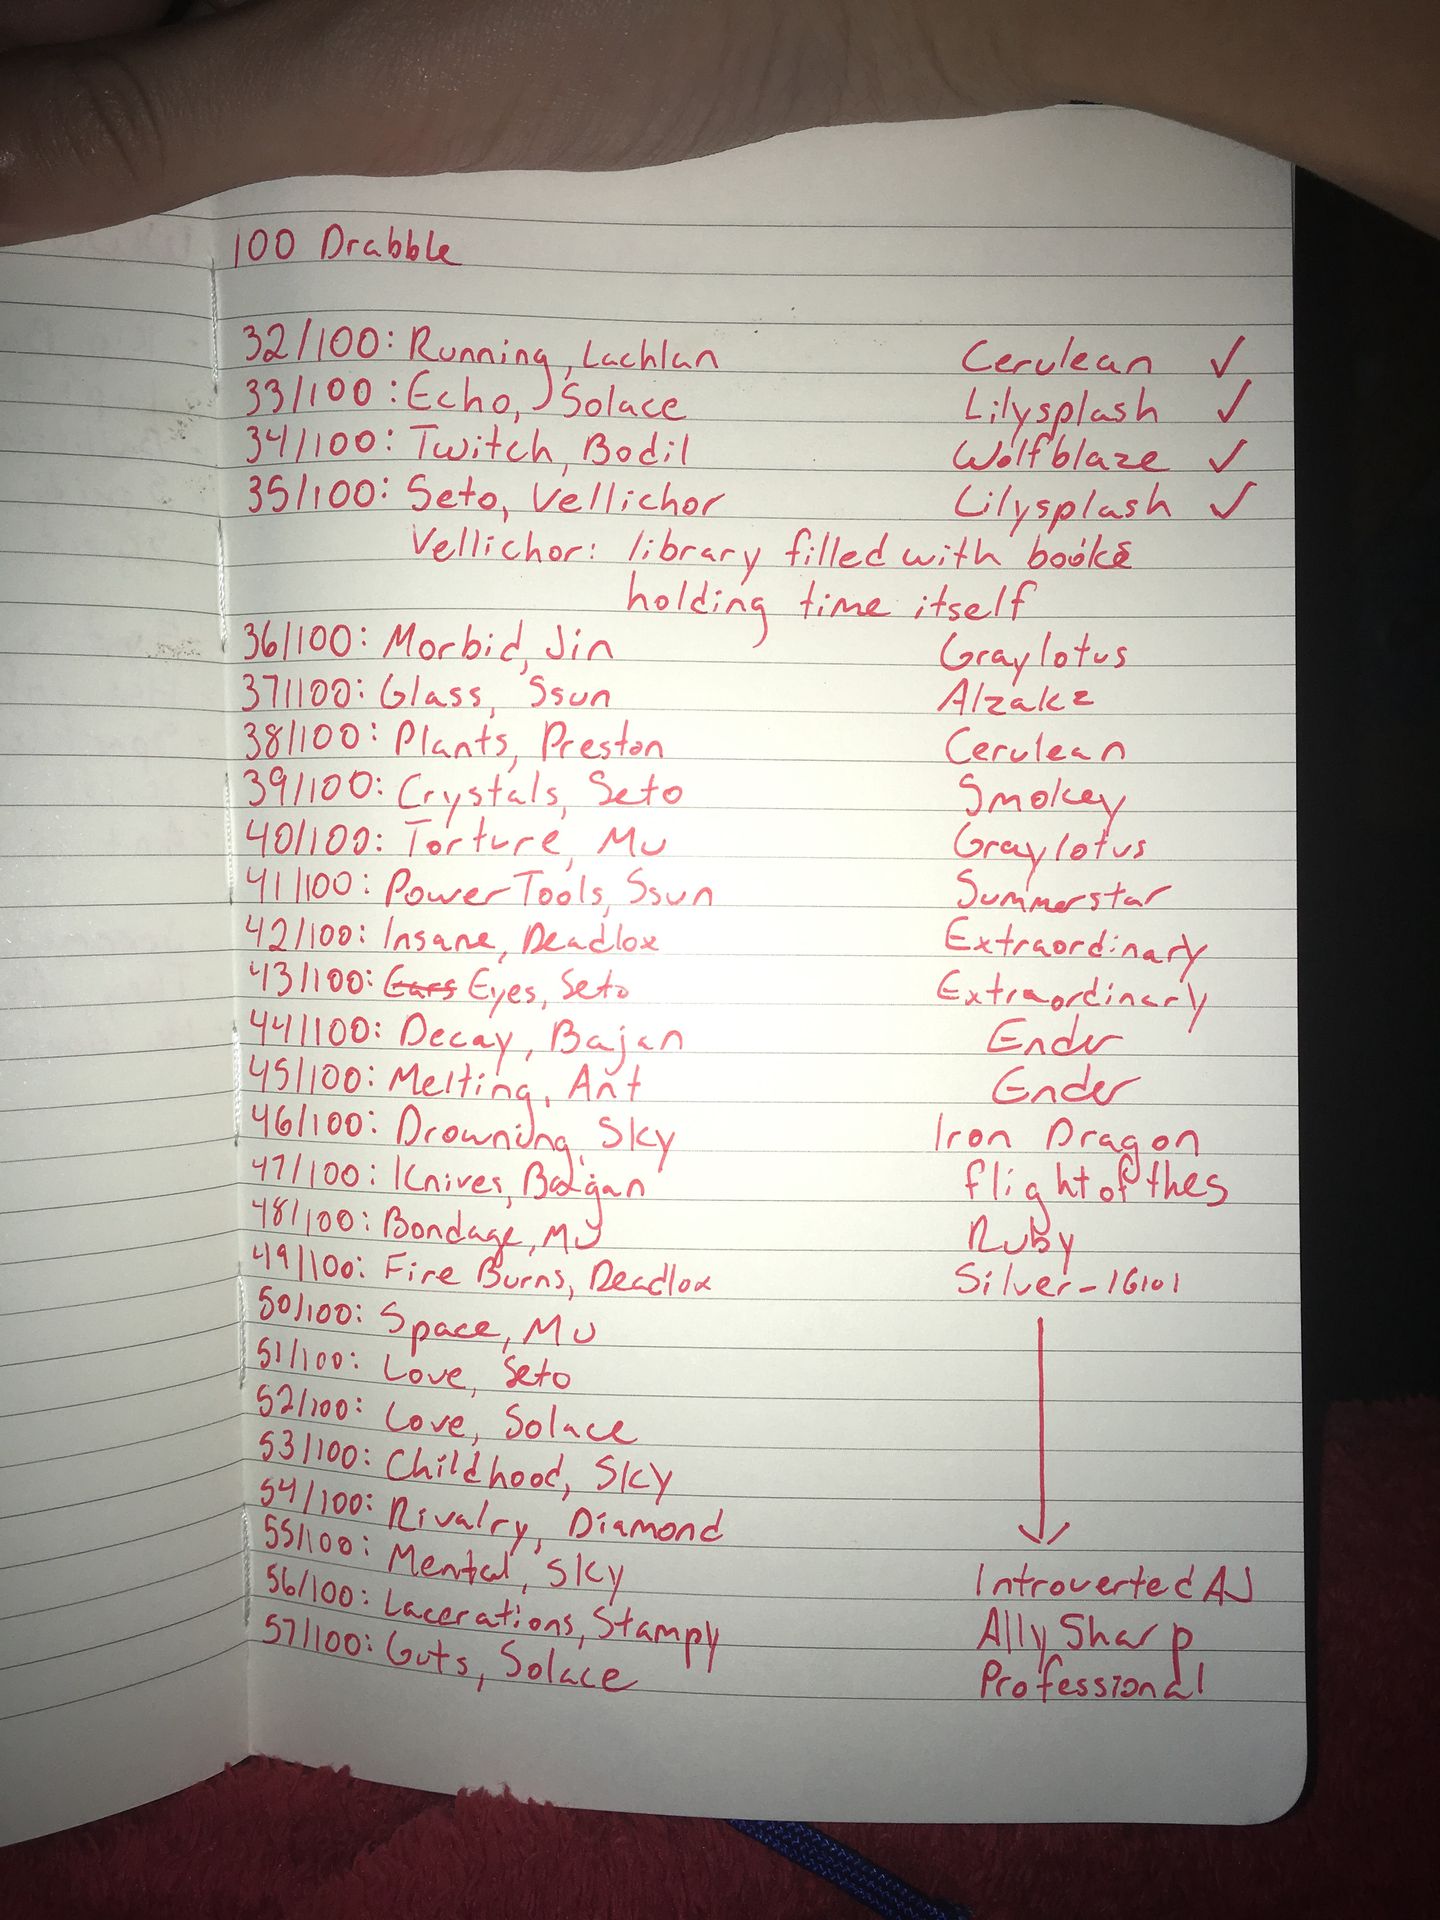 100 Drabble
32/100: Running, Lachlan Cerulean ✓
33/100: Echo, Solace Lilysplash ✓
34/100: Twitch, Bodil Wolfblaze ✓
35/100: Seto, Vellichor Lilysplash ✓
Vellichor: library filled with books
holding time itself
36/100: Morbid, Jin Graylotus
37/100: Glass, Ssun Alzakz
38/100: Plants, Preston Cerulean
39/100: Crystals, Seto Smokey
40/100: Torture, Mu Graylotus
41/100: Power Tools, Ssun Summerstar
42/100: Insane, Deadlox Extraordinary
43/100: Ears Eyes, Seto Extraordinary
44/100: Decay, Bajan Ender
45/100: Melting, Ant Ender
46/100: Drowning, Sky Iron Dragon
47/100: Knives, Bajan flightofthes
48/100: Bondage, Mu Ruby
49/100: Fire Burns, Deadlox Silver-16101
50/100: Space, Mu
51/100: Love, Seto
52/100: Love, Solace
53/100: Childhood, Sky
54/100: Rivalry, Diamond
55/100: Mental, Sky IntrovertedAJ
56/100: Lacerations, Stampy Ally Sharp
57/100: Guts, Solace Professional